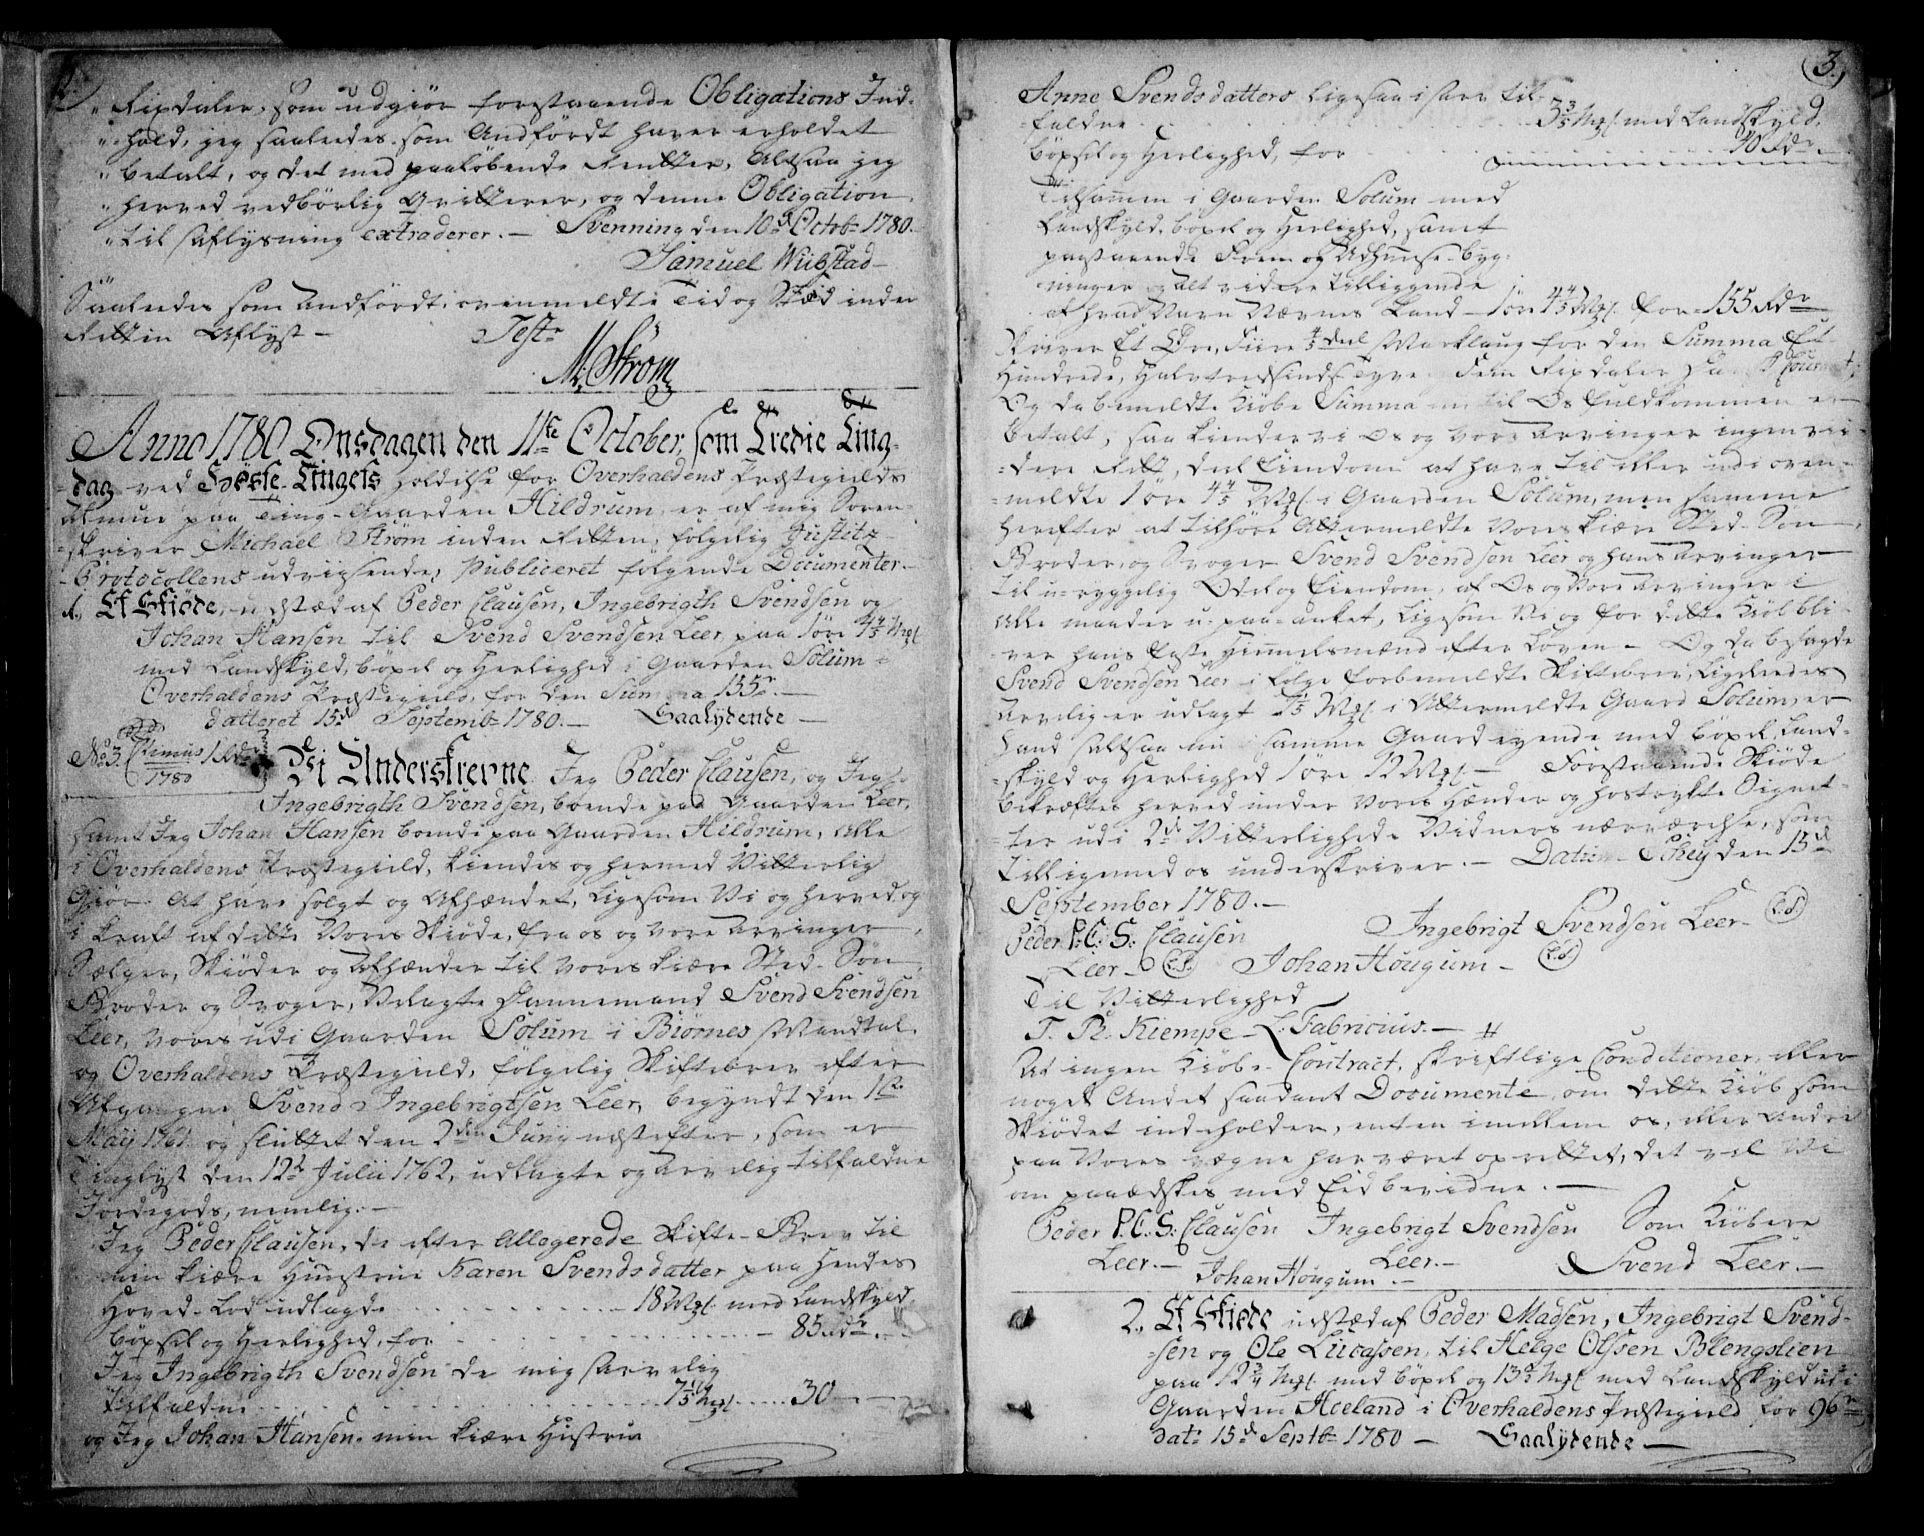 2.
" Rixdaler, som udgiør forestaaende Obligations Ind-
" hold, jeg saaledes som Andførdt haver erholdet
" betalt, og det med paaløbende Rentter, Altsaa jeg
" herved vedbørlig Qvitterer, og denne Obligation
" til aflysning extraderer. — Svenning den 10de Octobr 1780.
Samuel Wibstad
Saaledes som Andførdt, ovenmeldte Tid og Stæd inden
Retten Aflyst — Test
M. Strøm
Anno 1780 Onsdagen den 11te October, som Tredie Ting-
dag ved Høste-Tingets holdelse for Overhaldens Præstegields
Almue paa Ting-Gaarden Hildrum, er af mig Soren-
skriver Michael Strøm inden Retten, følgelig Justitz-
Protocollens udviisende, publiceret følgende Documenter.
1. Et Skiøde, udstæd af Peder Clausen, Ingebrigth Svendsen og
Johan Hansen til Svend Svendsen Leer paa 1 øre 4 4/5 Mgl.
med Landskyld, bøxel og Herlighed i Gaarden Solum i
Overhaldens Præstegield, for den Summa 155 r. —
datteret 15de Septembr 1780. — Saalydende —
No 3. 1 Rdr 1780
Vi Underskrevne Jeg Peder Clausen, og Jeg
Ingebrigth Svendsen, boende paa Gaarden Leer,
samt Jeg Johan Hansen boende paa Gaarden Hildrum, Alle
i Overhaldens Præstegield, kiendes og hermed Vitterlig
Giør. At have solgt og Afhændet, Ligesom Vi og herved og
i kraft af dette Vores Skiøde, fra os og vore Arvinger,
Sælger, Skiøder og Afhænder til vores kiære Sted-Søn
Broder og Svoger, Velagte Dannemand Svend Svendsen
Leer, vores udi Gaarden Solum i Biørnes Mandtal
og Overhaldens Præstegield, følgelig Skiftebrev efter
Afgangne Svend Ingebrigtsen Leer, begyndt den 1ste
May 1761 og sluttet den 2den Juny næstefter, som er
Tinglyst den 12te Julii 1762, udlagte og Arvelig tilfaldne
Jordegods, nemlig. —
Jeg Peder Clausen, de efter Allegerede Skifte-Brev til
min kiære Hustrue Karen Svendsdatter paa hendes
Hoved-Lod udlagde 18 Mgl. med Landskyld
bøxel og Herlighed, for 85 Rdr.
Jeg Ingebrigth Svendsen de mig arvelig
tilfaldne 7 1/5 Mgl. 30 —
og Jeg Johan Hansen, min kiære Hustrue
3.
Anne Svendsdatters ligesaa i arv til-
faldne 3 3/5 Mgl. med Landskyld,
bøxel og Herlighed, for 40 Rdr
Tilsammen i Gaarden Solum med
Landskyld, bøxel og Herlighed, samt
paastaaende Frem og Udhuuse-byg-
ninger og alt videre tilliggende
af hvad Navn Nævnes kand — 1 øre 4 4/5 Mgl. for 155 Rdr
skriver Et Øre, Fiire 4/5 deel Marklaug for den Summa Et-
Hundrede, Halvtredsindstyve Fem Rixdaler
Og da bemeldte Kiøbe Summa nu til Os fuldkommen er
betalt, saa kiender vi os og vore Arvinger ingen vii-
dere Rett, deel Eiendom at have til eller udi oven-
meldte 1 øre 4 4/5 Mgl. i Gaarden Solum, men samme
herefter at tilhøre Attermeldte vores kiære Sted-Søn,
Broder og Svoger Svend Svendsen Leer og hans Arvinger
til u-ryggelig Odel og Eiendom, af Os og Vore Arvinger i
Alle maader u-paa-anket, Ligesom Vi og for dette Kiøb bli-
ver hans faste Hiemmelsmænd efter Loven — Og da besagde
Svend Svendsen Leer i følge forbemeldte Skiftebrev ligeledes
Arvelig er udlagt 7 1/5 Mgl. i Attermeldte Gaard Solum, er
hand altsaa nu i samme Gaard eyende med bøxel, Land-
skyld og Herlighed 1 øre 12 Mgl. — Forestaaende Skiøde
bekræftes herved under Vores Hænder og hostrykte Signet-
ter udi 2de Vitterligheds Vidners nærværelse, som
tilligemed os underskriver. — Datum den 15de
September 1780. —
Peder P. C. S. Clausen Ingebrigt Svendsen Leer — (L.S.)
Leer — (L.S.) Johan Hougum — (L.S.)
Til Vitterlighed
T. R. Kiempe — L. Fabricius. —
At ingen Kiøbe-Contract, skriftlige Conditioner, eller
noget Andet saadant Documente, om dette Kiøb som
Skiødet indeholder, enten imellem os, eller Andre
paa Vores vægne har været oprettet, det vil Vi
om paaædskes med Eed bevidne. —
Peder P. C. S. Clausen Ingebrigt Svendsen Som Kiøbere
Leer. — Leer. — Svend Leer. —
Johan Hougum. —
2. Et Skiøde udstæd af Peder Madsen, Ingebrigt Svend-
sen og Ole Lucassen, til Helge Olssen Blengslien
paa 12 3/4 Mgl. med bøxel og Mgl. med Landskyld udi
Gaarden Aceland i Overhaldens Præstegield for 96 r
dat. 15de Septbr 1780 — Saalydende —